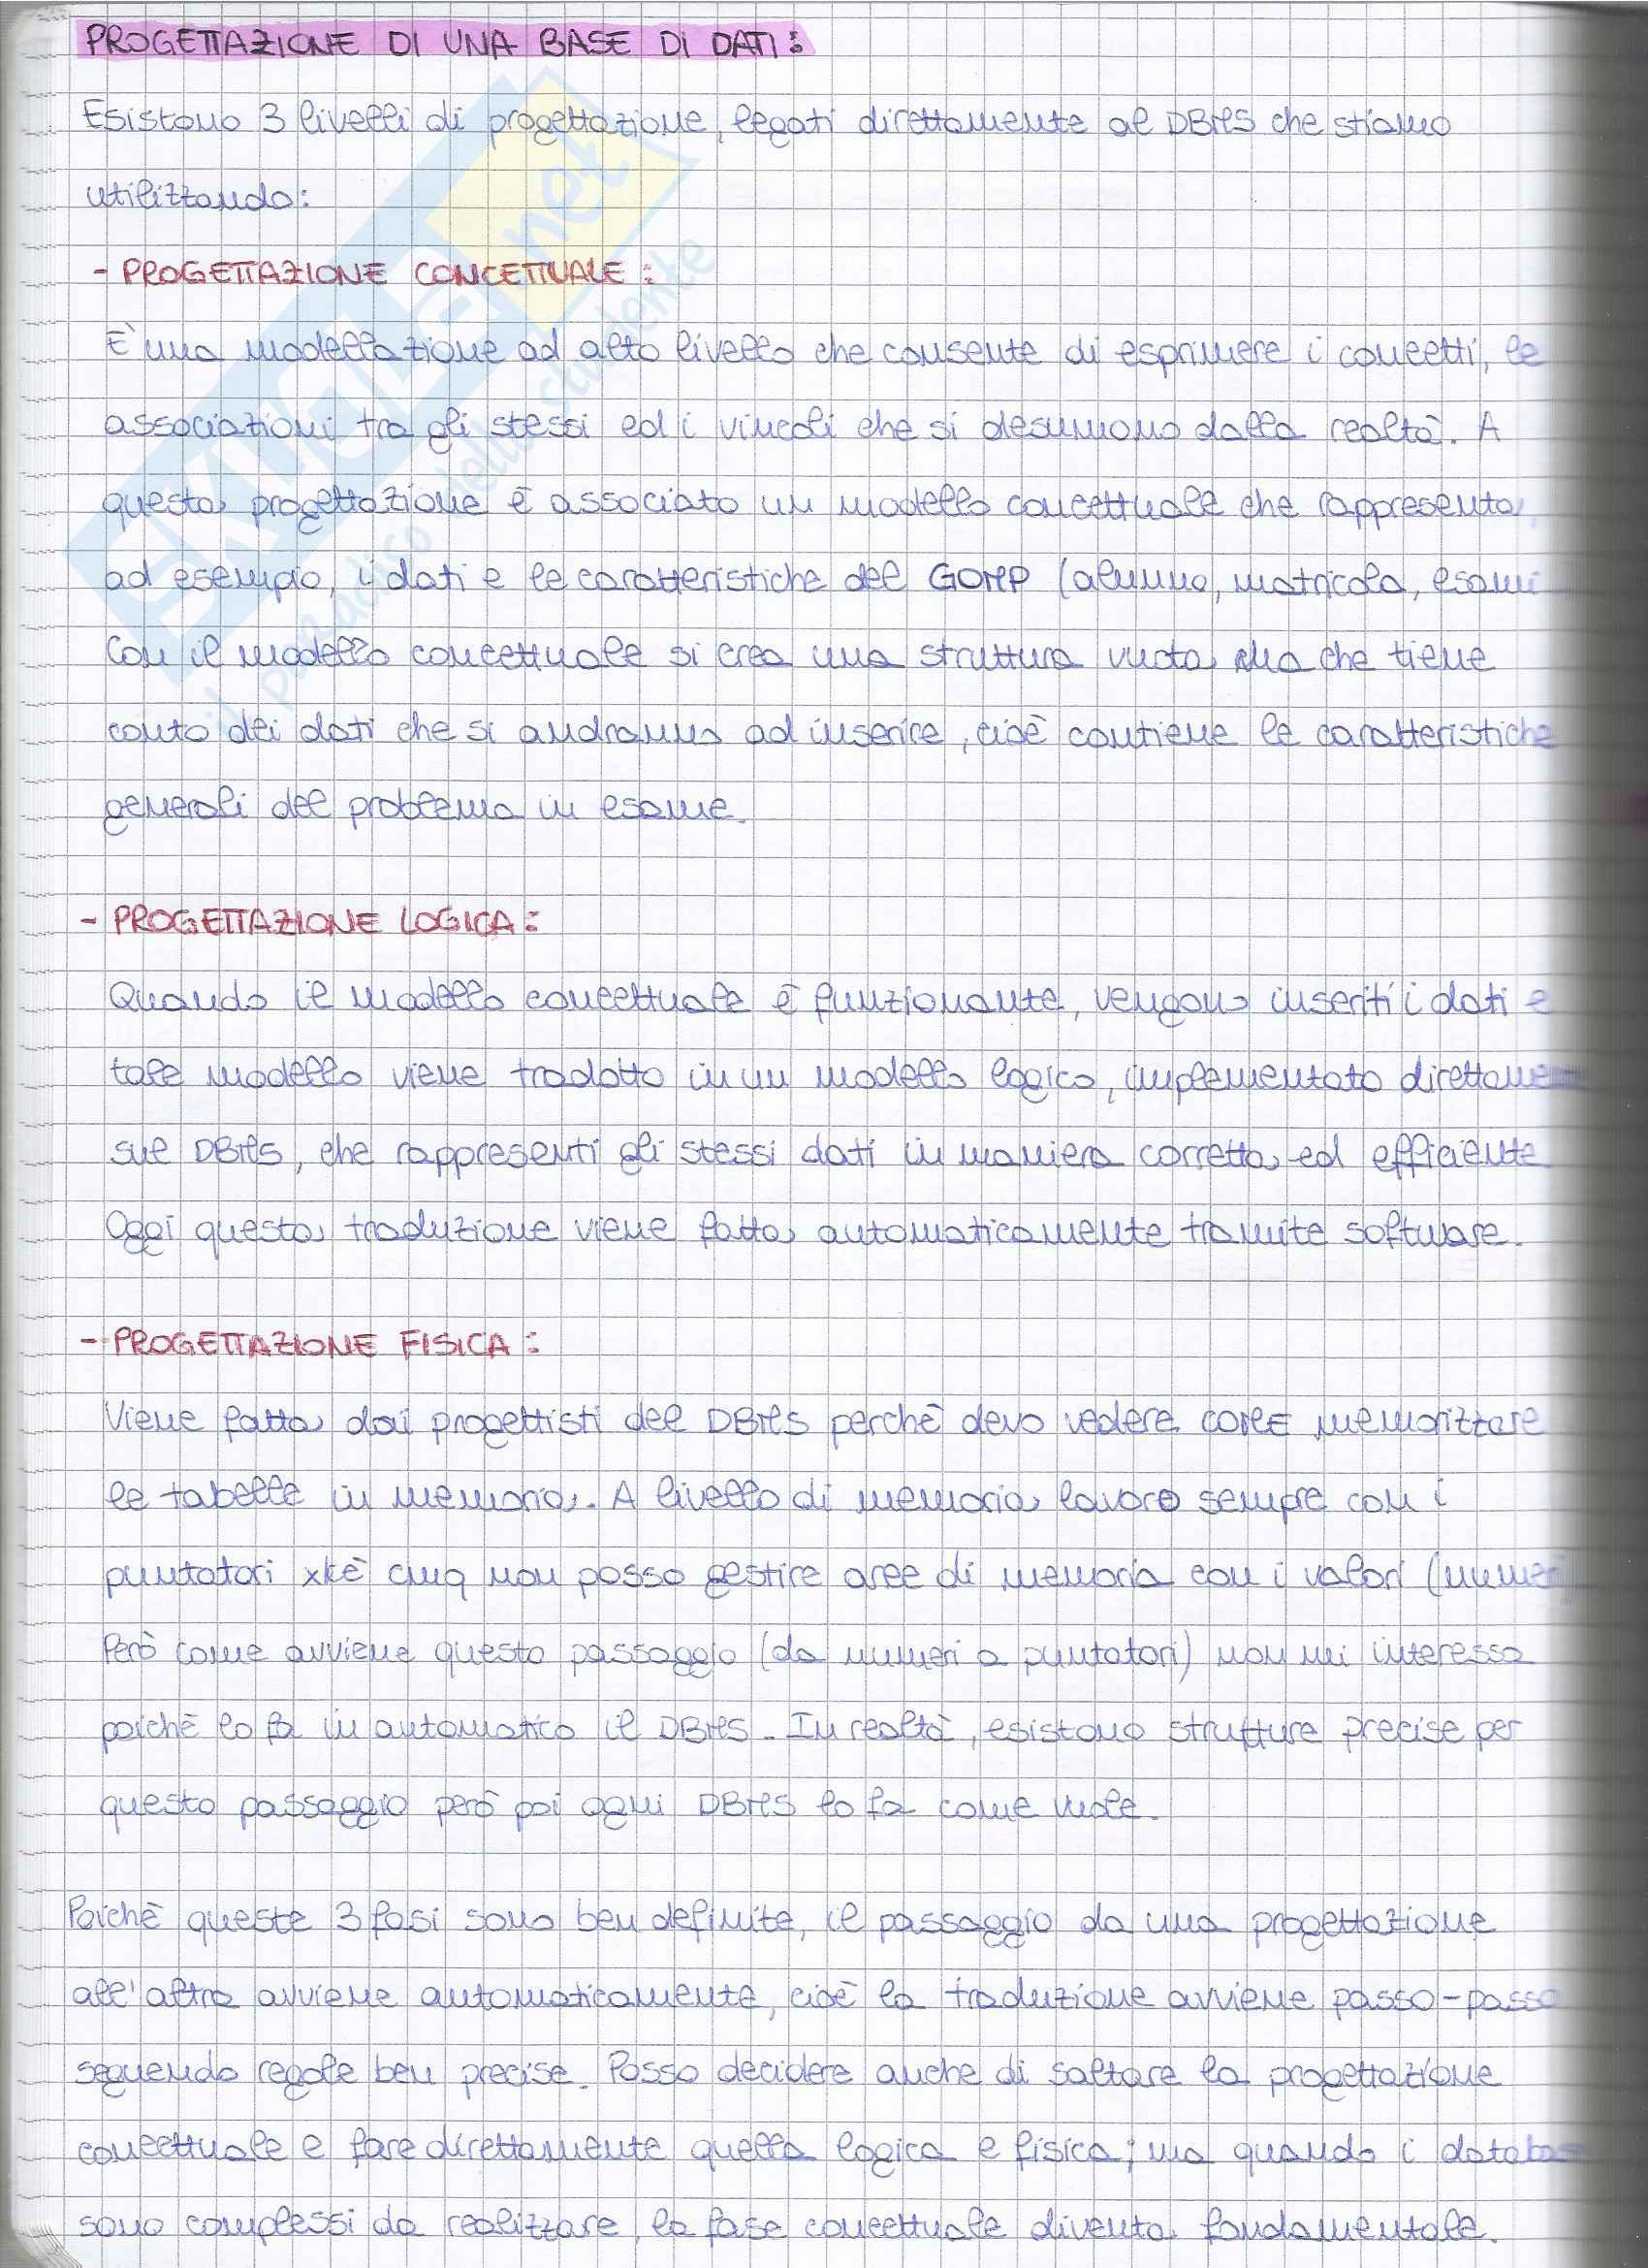 PROGETTAZIONE DI UNA BASE DI DATI:
Esistono 3 livelli di progettazione, legati direttamente al DBMS che stiamo
utilizzando:
- PROGETTAZIONE CONCETTUALE:
È una modellazione ad alto livello che consente di esprimere i concetti, le
associazioni tra gli stessi ed i vincoli che si desumono dalla realtà. A
questa progettazione è associato un modello concettuale che rappresenta,
ad esempio, i dati e le caratteristiche del GOMP (alunno, matricola, esami
Con il modello concettuale si crea una struttura vuota ma che tiene
conto dei dati che si andranno ad inserire, cioè contiene le caratteristiche
generali del problema in esame.
- PROGETTAZIONE LOGICA:
Quando il modello concettuale è funzionante, vengono inseriti i dati e
tale modello viene tradotto in un modello logico, implementato direttame
sul DBMS, che rappresenti gli stessi dati in maniera corretta ed efficiente
Oggi questa traduzione viene fatta automaticamente tramite software.
- PROGETTAZIONE FISICA:
Viene fatta dai progettisti del DBMS perchè devo vedere COME memorizzare
le tabelle in memoria. A livello di memoria lavoro sempre con i
puntatori xkè cmq non posso gestire aree di memoria con i valori (numeri
Però come avviene questo passaggio (da numeri a puntatori) non mi interessa
poichè lo fa in automatico il DBMS. In realtà, esistono strutture precise per
questo passaggio però poi ogni DBMS lo fa come vuole.
Poichè queste 3 fasi sono ben definite, il passaggio da una progettazione
all'altra avviene automaticamente, cioè la traduzione avviene passo-passo
seguendo regole ben precise. Posso decidere anche di saltare la progettazione
concettuale e fare direttamente quella logica e fisica; ma quando i database
sono complessi da realizzare, la fase concettuale diventa fondamentale.
SKUOLA.net
il paradiso dello studente